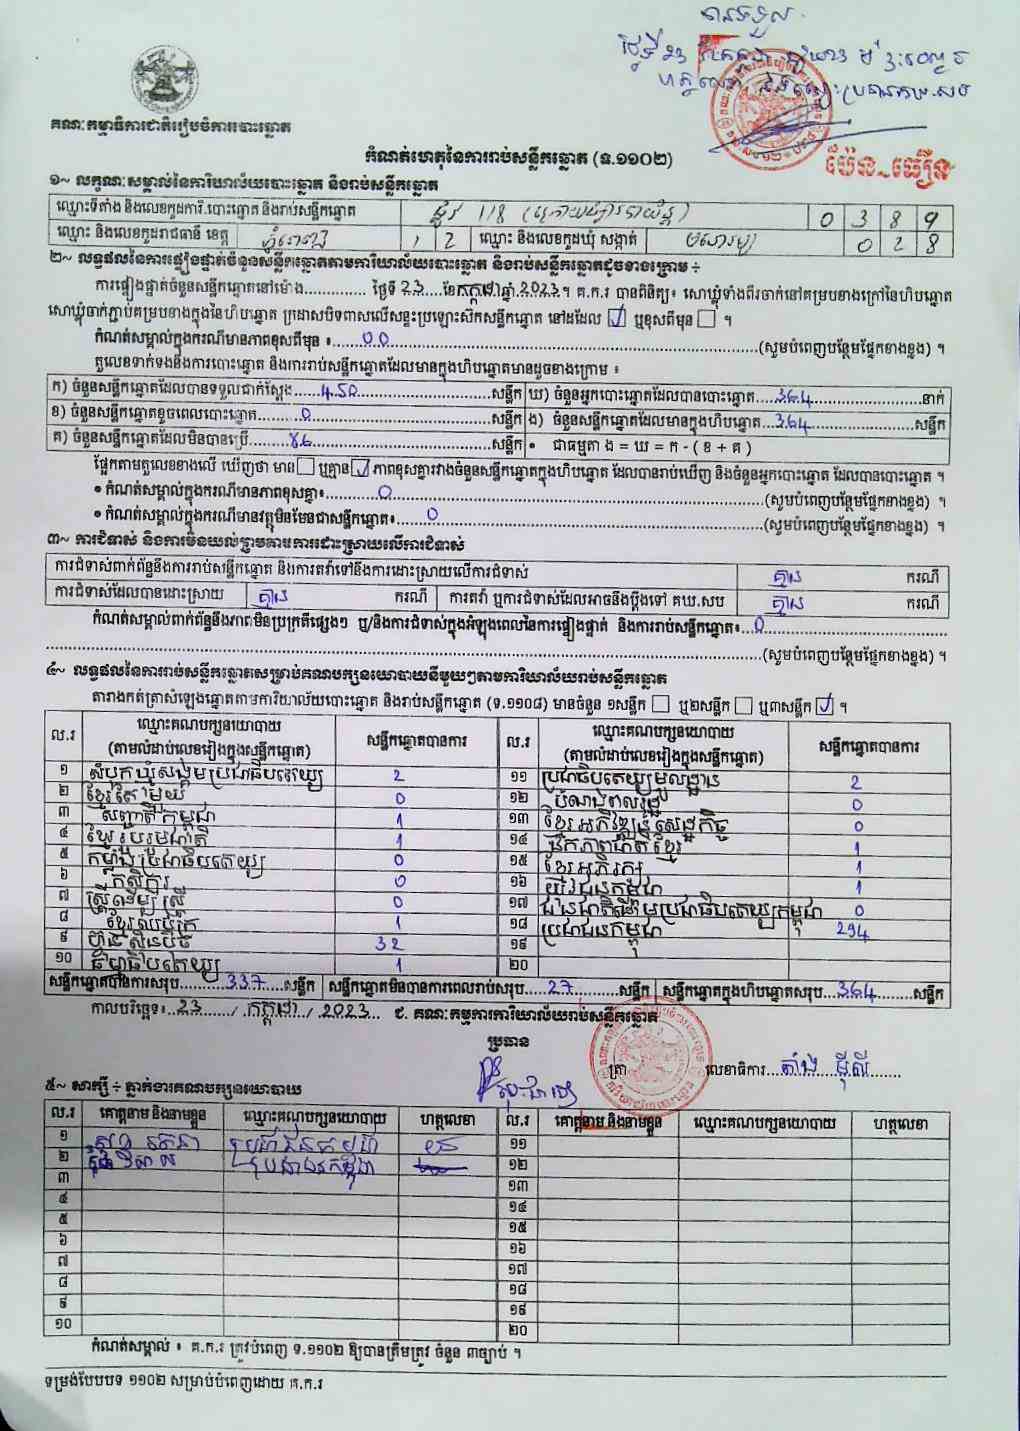 បានទទួល
គណៈកម្មាធិការជាតិរៀបចំការបោះឆ្នោត
កំណត់ហេតុនៃការរាប់សន្លឹកឆ្នោត (ទ.១១០២)
ប៉ែន.ធឿន
១~ លក្ខណៈសម្គាល់នៃការិយាល័យបោះឆ្នោត និងរាប់សន្លឹកឆ្នោត
ឈ្មោះទីតាំង និងលេខកូដការិ.បោះឆ្នោត និងរាប់សន្លឹកឆ្នោត ផ្លូវ 118 0 3 8 9
ឈ្មោះ និងលេខកូដរាជធានី ខេត្ត ភ្នំពេញ 1 2 ឈ្មោះ និងលេខកូដឃុំ សង្កាត់ 0 2 8
២~ លទ្ធផលនៃការផ្ទៀងផ្ទាត់ចំនួនសន្លឹកឆ្នោតតាមការិយាល័យបោះឆ្នោត និងរាប់សន្លឹកឆ្នោតដូចខាងក្រោម ÷
ការផ្ទៀងផ្ទាត់ចំនួនសន្លឹកឆ្នោតនៅម៉ោង............ ថ្ងៃទី 23 ខែកក្កដា ឆ្នាំ 2023 ។ គ.ក.រ បានពិនិត្យ៖ សោឃ្លុំទាំងពីរចាក់នៅគម្របខាងក្រៅនៃហិបឆ្នោត
សោឃ្លុំចាក់ភ្ជាប់គម្របខាងក្នុងនៃហិបឆ្នោត ក្រដាសបិទពាសលើសន្ទះប្រឡោះសឹកសន្លឹកឆ្នោត នៅដដែល ☑ ឬខុសពីមុន ☐ ។
កំណត់សម្គាល់ក្នុងករណីមានភាពខុសពីមុន ៖ 00 (សូមបំពេញបន្ថែមផ្នែកខាងខ្នង) ។
តួលេខទាក់ទងនឹងការបោះឆ្នោត និងការរាប់សន្លឹកឆ្នោតដែលមានក្នុងហិបឆ្នោតមានដូចខាងក្រោម ៖
ក) ចំនួនសន្លឹកឆ្នោតដែលបានទទួលជាក់ស្តែង 450 សន្លឹក ឃ) ចំនួនអ្នកបោះឆ្នោតដែលបានបោះឆ្នោត 364 នាក់
ខ) ចំនួនសន្លឹកឆ្នោតខូចពេលបោះឆ្នោត 0 សន្លឹក ង) ចំនួនសន្លឹកឆ្នោតដែលមានក្នុងហិបឆ្នោត 364 សន្លឹក
គ) ចំនួនសន្លឹកឆ្នោតដែលមិនបានប្រើ 86 សន្លឹក • ជាធម្មតា ង = ឃ = ក - ( ខ + គ )
ផ្អែកតាមតួលេខខាងលើ ឃើញថា មាន ☐ ឬគ្មាន ☑ ភាពខុសគ្នារវាងចំនួនសន្លឹកឆ្នោតក្នុងហិបឆ្នោត ដែលបានរាប់ឃើញ និងចំនួនអ្នកបោះឆ្នោត ដែលបានបោះឆ្នោត ។
• កំណត់សម្គាល់ក្នុងករណីមានភាពខុសគ្នា៖ 0 (សូមបំពេញបន្ថែមផ្នែកខាងខ្នង) ។
• កំណត់សម្គាល់ក្នុងករណីមានវត្ថុមិនមែនជាសន្លឹកឆ្នោត៖ 0 (សូមបំពេញបន្ថែមផ្នែកខាងខ្នង) ។
៣~ ការជំទាស់ និងការមិនយល់ព្រមតាមការដោះស្រាយលើការជំទាស់
ការជំទាស់ពាក់ព័ន្ធនឹងការរាប់សន្លឹកឆ្នោត និងការតវ៉ាទៅនឹងការដោះស្រាយលើការជំទាស់ គ្មាន ករណី
ការជំទាស់ដែលបានដោះស្រាយ គ្មាន ករណី ការតវ៉ា ឬការជំទាស់ដែលអាចនឹងប្តឹងទៅ គឃ.សប គ្មាន ករណី
កំណត់សម្គាល់ពាក់ព័ន្ធនឹងភាពមិនប្រក្រតីផ្សេងៗ ឬ/និងការជំទាស់ក្នុងអំឡុងពេលនៃការផ្ទៀងផ្ទាត់ និងការរាប់សន្លឹកឆ្នោត៖ 0
(សូមបំពេញបន្ថែមផ្នែកខាងខ្នង) ។
៤~ លទ្ធផលនៃការរាប់សន្លឹកឆ្នោតសម្រាប់គណបក្សនយោបាយនីមួយៗតាមការិយាល័យរាប់សន្លឹកឆ្នោត
តារាងកត់ត្រាសំឡេងឆ្នោតតាមការិយាល័យបោះឆ្នោត និងរាប់សន្លឹកឆ្នោត (ទ.១១០៨) មានចំនួន ១សន្លឹក ☐ ឬ២សន្លឹក ☐ ឬ៣សន្លឹក ☑ ។
ល.រ ឈ្មោះគណបក្សនយោបាយ (តាមលំដាប់លេខរៀងក្នុងសន្លឹកឆ្នោត) សន្លឹកឆ្នោតបានការ ល.រ ឈ្មោះគណបក្សនយោបាយ (តាមលំដាប់លេខរៀងក្នុងសន្លឹកឆ្នោត) សន្លឹកឆ្នោតបានការ
១ សំបុកឃ្មុំសង្គមប្រជាធិបតេយ្យ 2 ១១ ប្រជាធិបតេយ្យមូលដ្ឋាន 2
២ ខ្មែរតែមួយ 0 ១២ បំណងពលរដ្ឋ 0
៣ សញ្ជាតិកម្ពុជា 1 ១៣ ខ្មែរអភិវឌ្ឍន៍សេដ្ឋកិច្ច 0
៤ ខ្មែររួបរួមជាតិ 1 ១៤ ឯកភាពជាតិខ្មែរ 1
៥ កម្លាំងប្រជាធិបតេយ្យ 0 ១៥ ខ្មែរអភិរក្ស 1
៦ កសិករ 0 ១៦ យុវជនកម្ពុជា 1
៧ ស្ត្រីដើម្បីស្ត្រី 0 ១៧ ជនជាតិដើមប្រជាធិបតេយ្យកម្ពុជា 0
៨ ខ្មែរឈប់ក្រ 1 ១៨ ប្រជាជនកម្ពុជា 294
៩ ហ៊្វុនស៊ិនប៉ិច 32 ១៩
១០ ធម្មាធិបតេយ្យ 1 ២០
សន្លឹកឆ្នោតបានការសរុប 337 សន្លឹក សន្លឹកឆ្នោតមិនបានការពេលរាប់សរុប 27 សន្លឹក សន្លឹកឆ្នោតក្នុងហិបឆ្នោតសរុប 364 សន្លឹក
កាលបរិច្ឆេទ៖ 23 / កក្កដា / 2023 ជ. គណៈកម្មការការិយាល័យរាប់សន្លឹកឆ្នោត
ប្រធាន
ត្រា លេខាធិការ តាំង ដ៊ីលី
៥~ សាក្សី ÷ ភ្នាក់ងារគណបក្សនយោបាយ
ល.រ គោត្តនាម និងនាមខ្លួន ឈ្មោះគណបក្សនយោបាយ ហត្ថលេខា ល.រ គោត្តនាម និងនាមខ្លួន ឈ្មោះគណបក្សនយោបាយ ហត្ថលេខា
១ ប្រជាជនកម្ពុជា ១១
២ ប្រជាជនកម្ពុជា ១២
៣ ១៣
៤ ១៤
៥ ១៥
៦ ១៦
៧ ១៧
៨ ១៨
៩ ១៩
១០ ២០
កំណត់សម្គាល់ ៖ គ.ក.រ ត្រូវបំពេញ ទ.១១០២ ឱ្យបានត្រឹមត្រូវ ចំនួន ៣ច្បាប់ ។
ទម្រង់បែបបទ ១១០២ សម្រាប់បំពេញដោយ គ.ក.រ